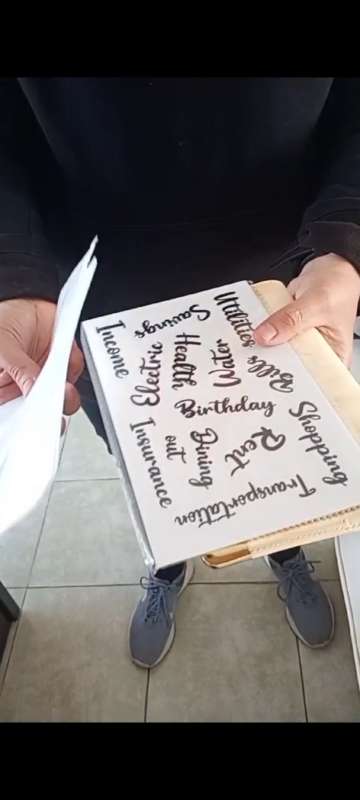 Utilities
Savings
Bills
Water
Health
Electric
Income
Birthday
Shopping
Rent
Dining
out
Insurance
Transportation